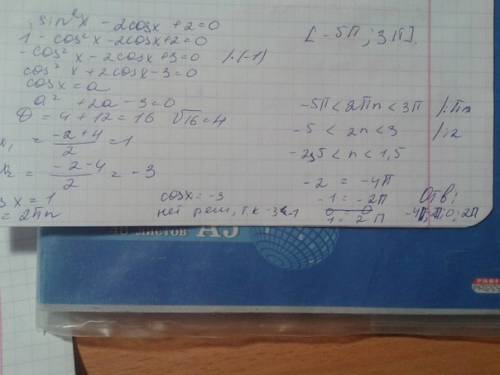 sin²x - 2cosx + 2 = 0
1 - cos²x - 2cosx + 2 = 0
-cos²x - 2cosx + 3 = 0 /·(-1)
cos²x + 2cosx - 3 = 0
cosx = a
a² + 2a - 3 = 0
D = 4 + 12 = 16 √16 = 4
x₁ = (-2+4)/2 = 1
x₂ = (-2-4)/2 = -3
cos x = 1
x = 2πn
cosx = -3
нет реш, т.к -3<-1
[-5π ; 3π].
-5π < 2πn < 3π /:π
-5 < 2n < 3 /:2
-2,5 < n < 1,5
-2 = -4π
-1 = -2π
0 = 0
1 = 2π
Отв:
-4π; -2π; 0; 2π
листов A5